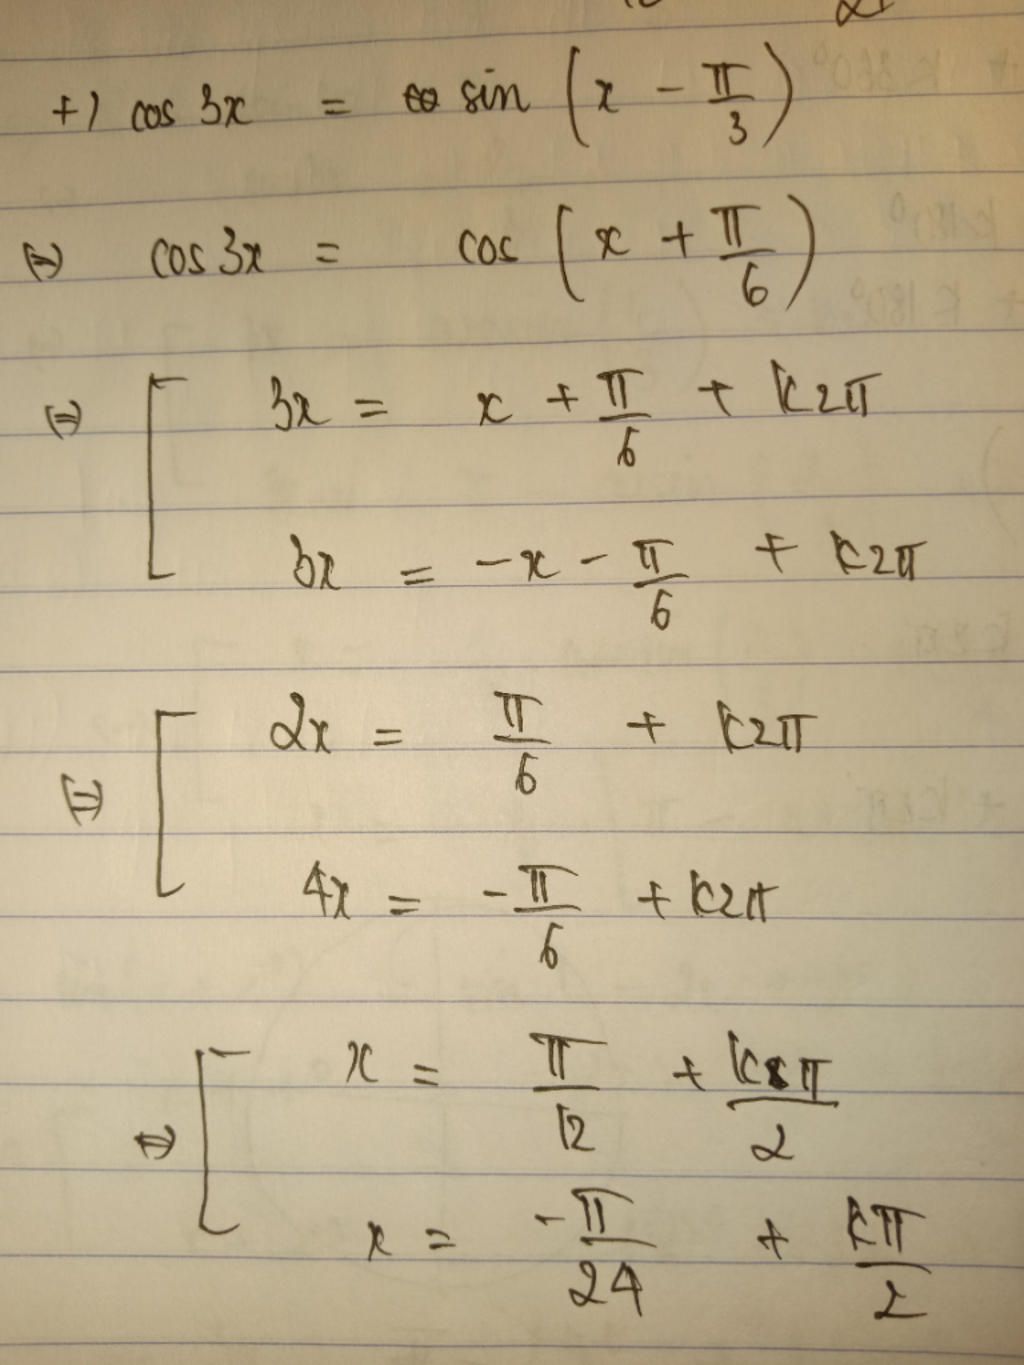 +) cos 3x = sin (x - π/3)
⇔ cos 3x = cos (x + π/6)
⇔ [ 3x = x + π/6 + k2π
3x = -x - π/6 + k2π
⇔ [ 2x = π/6 + k2π
4x = -π/6 + k2π
⇔ [ x = π/12 + kπ/2
x = -π/24 + kπ/2